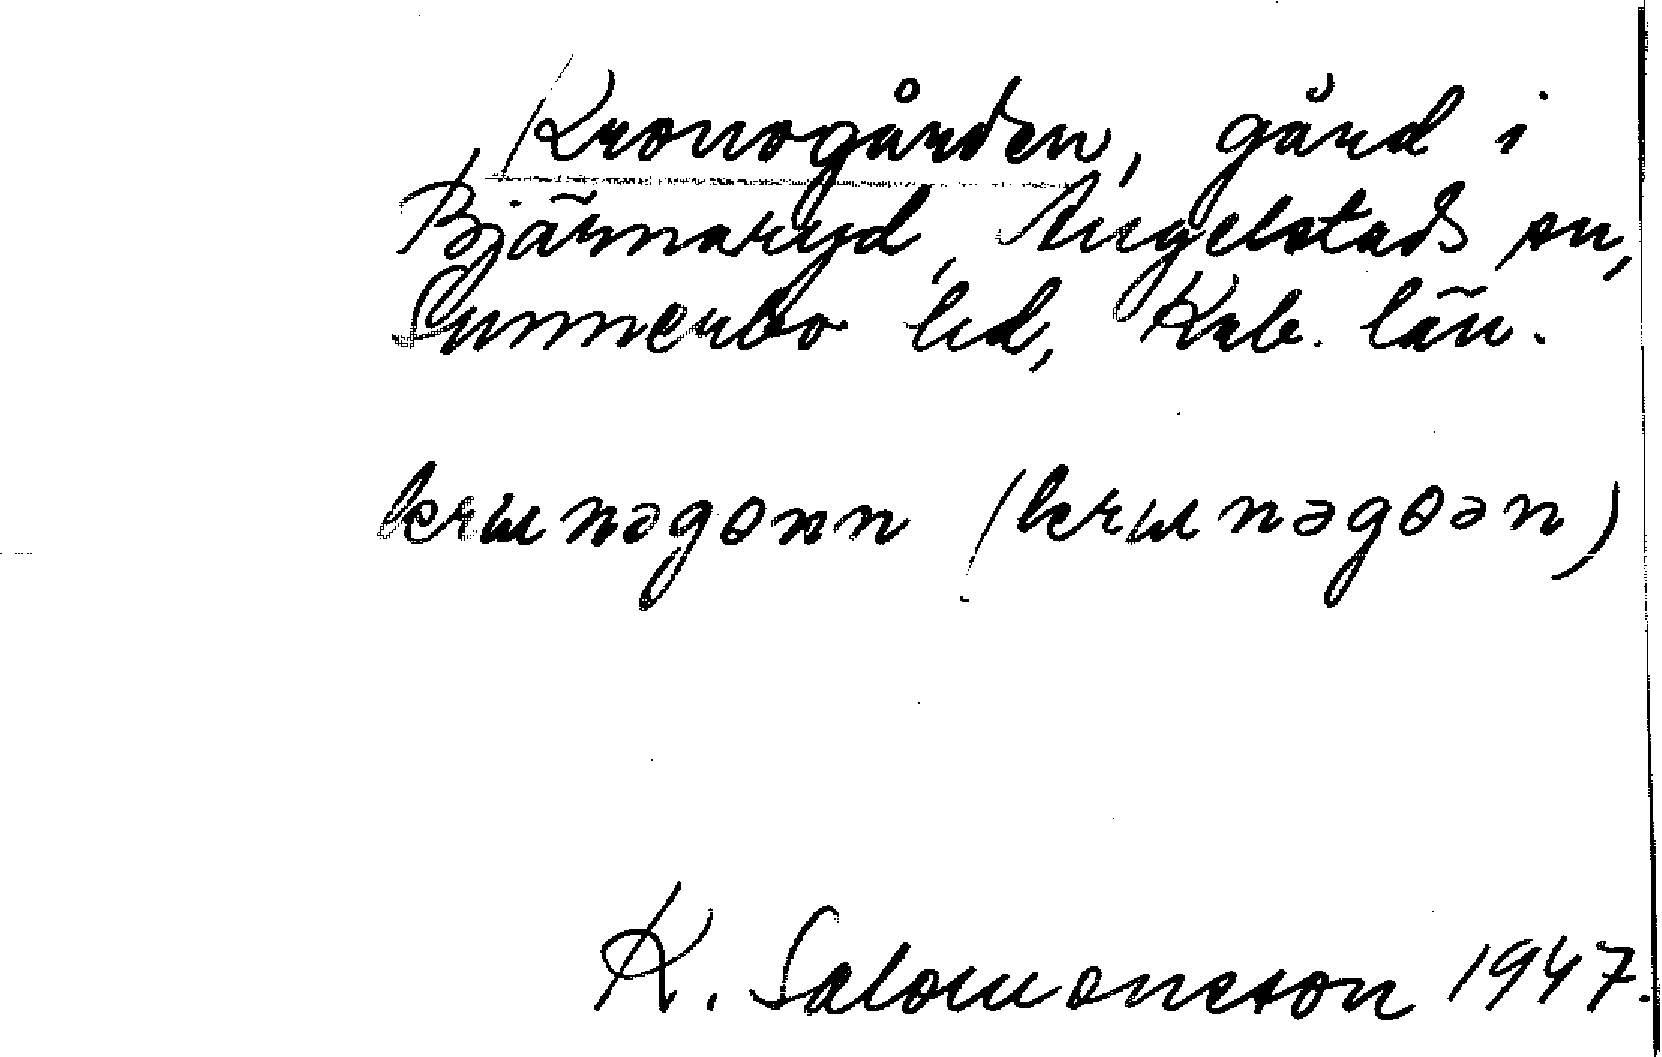 Kronogården, gård i
Bjärnaryd, Angelstads sn,
Sunnerbo hd, Krb. län.
krɯnəgɵnn (krɯnəgɵən)
K. Salomonsson 1947.